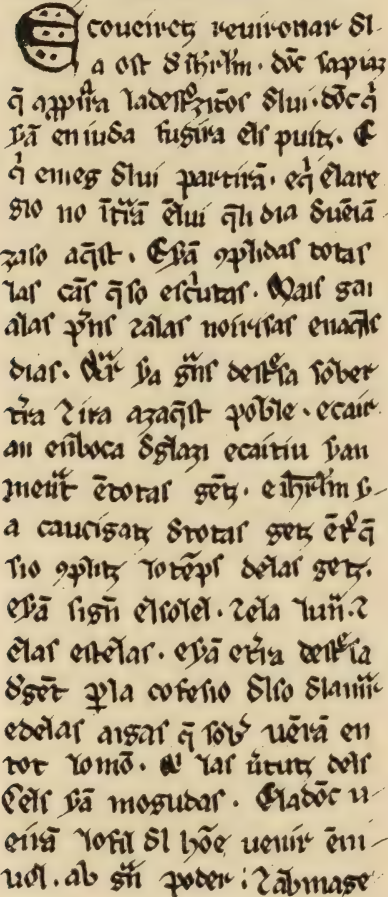 E coueiretz reuironar dl
a ost d ihrlm. doc sapiaz
q̃ appͥra la desͣzitos dlui. docq̇
sã en iuda fugira els puitz. E
q̇ emeg dlui partirã. eq̇ ela re
gio no ĩtrã ẽlui q̃li dia dueiã
zaso aq̃st. Esã ꝯplidas totas
las cãs q̃so escͥutas. Mais gai
alas p̃ns 7alas noirisas enaq̃ls
dias. Qar sa gñs destͤsa sober
tr̃a 7ira azaq̃st poble. ecair
an enboca d glazi ecaitiu san
menat ẽtotas gẽtz. e ihrlm s
a caucigatz d totas getz ẽtͦ q̃
sio ꝯplitz lo tẽps delas getz.
esã signñ elsolel. 7ela luñ. 7
elas estelas. esã etr̃a destͤsa
d gẽt ꝑ la cofesio dl so dla mͣr
edelas aigas q̃ sobͬ uẽrã en
tot lo mõ. las ũtutz dels
cels sã mogudas. E ladõc u
eirã lo fil dl hõe uenir ẽni
uol. ab gñ poder: 7ab mage